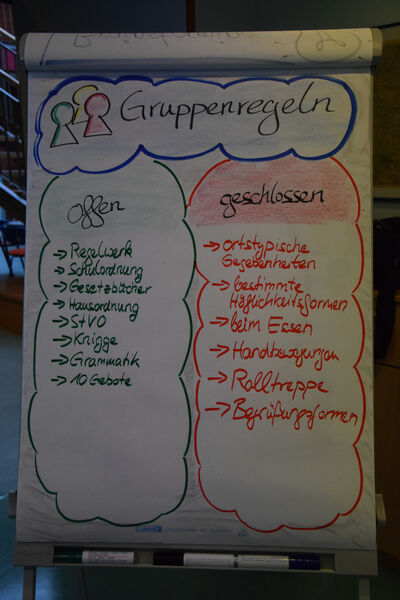 Gruppenregeln
offen
→ Regelwerk
→ Schulordnung
→ Gesetzbücher
→ Hausordnung
→ StVO
→ Knigge
→ Grammatik
→ 10 Gebote
geschlossen
→ ortstypische
Gegebenheiten
→ bestimmte
Höflichkeitsformen
→ beim Essen
→ Handbewegungen
→ Rolltreppe
→ Begrüßungsformen